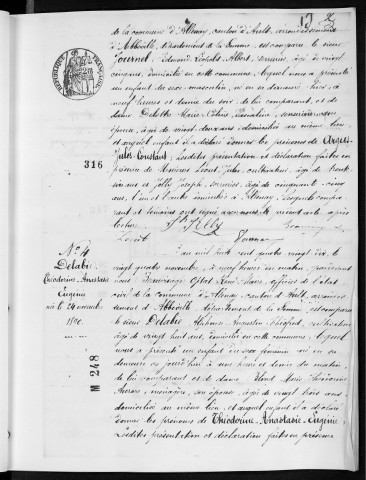 de la commune d'Allenay, canton d'Ault, arrondissement
d'Abbeville, département de la Somme, est comparu le sieur
Journel, Edmond Léopold Albert, serrurier, âgé de vingt
cinq ans, domicilié en cette commune, lequel nous a présenté
un enfant du sexe masculin, né en sa demeure hier, à
neuf heures et demie du soir, de lui comparant, et de
dame Delattre Marie Célina, son
épouse, âgée de vingt deux ans, domiciliée au même lieu,
et auquel enfant il a déclaré donner les prénoms de
Jules Constant. Lesdites présentation et déclaration faites en
présence de Jules, cultivateur, âgé de trente
six ans et Jolly Joseph, serrurier, âgé de cinquante cinq
ans, l'un et l'autre domiciliés à Allenay. Lesquels compa-
rant et témoins ont signé avec nous le présent acte après
lecture.
Journel
316
N° 4
Delabie
Théodorine Anastasie
Eugénie
née le 24 novembre
1890.
M 248
L'an mil huit cent quatre vingt dix, le
vingt quatre novembre, à neuf heures du matin, pardevant
nous René, maire, officier de l'état
civil de la commune d'Allenay, canton d'Ault, arrondis-
sement d'Abbeville, département de la Somme, est comparu
le sieur Delabie Alphonse Augustin Théophile, cultivateur,
âgé de vingt huit ans, domicilié en cette commune, lequel
nous a présenté un enfant du sexe féminin, né en sa
demeure ce jourd'hui à une heure et demie du matin,
de lui comparant et de dame Marie
ménagère, son épouse, âgée de vingt trois ans,
domiciliée au même lieu, et auquel enfant il a déclaré
donner les prénoms de Théodorine Anastasie Eugénie.
Lesdites présentation et déclaration faites en présence